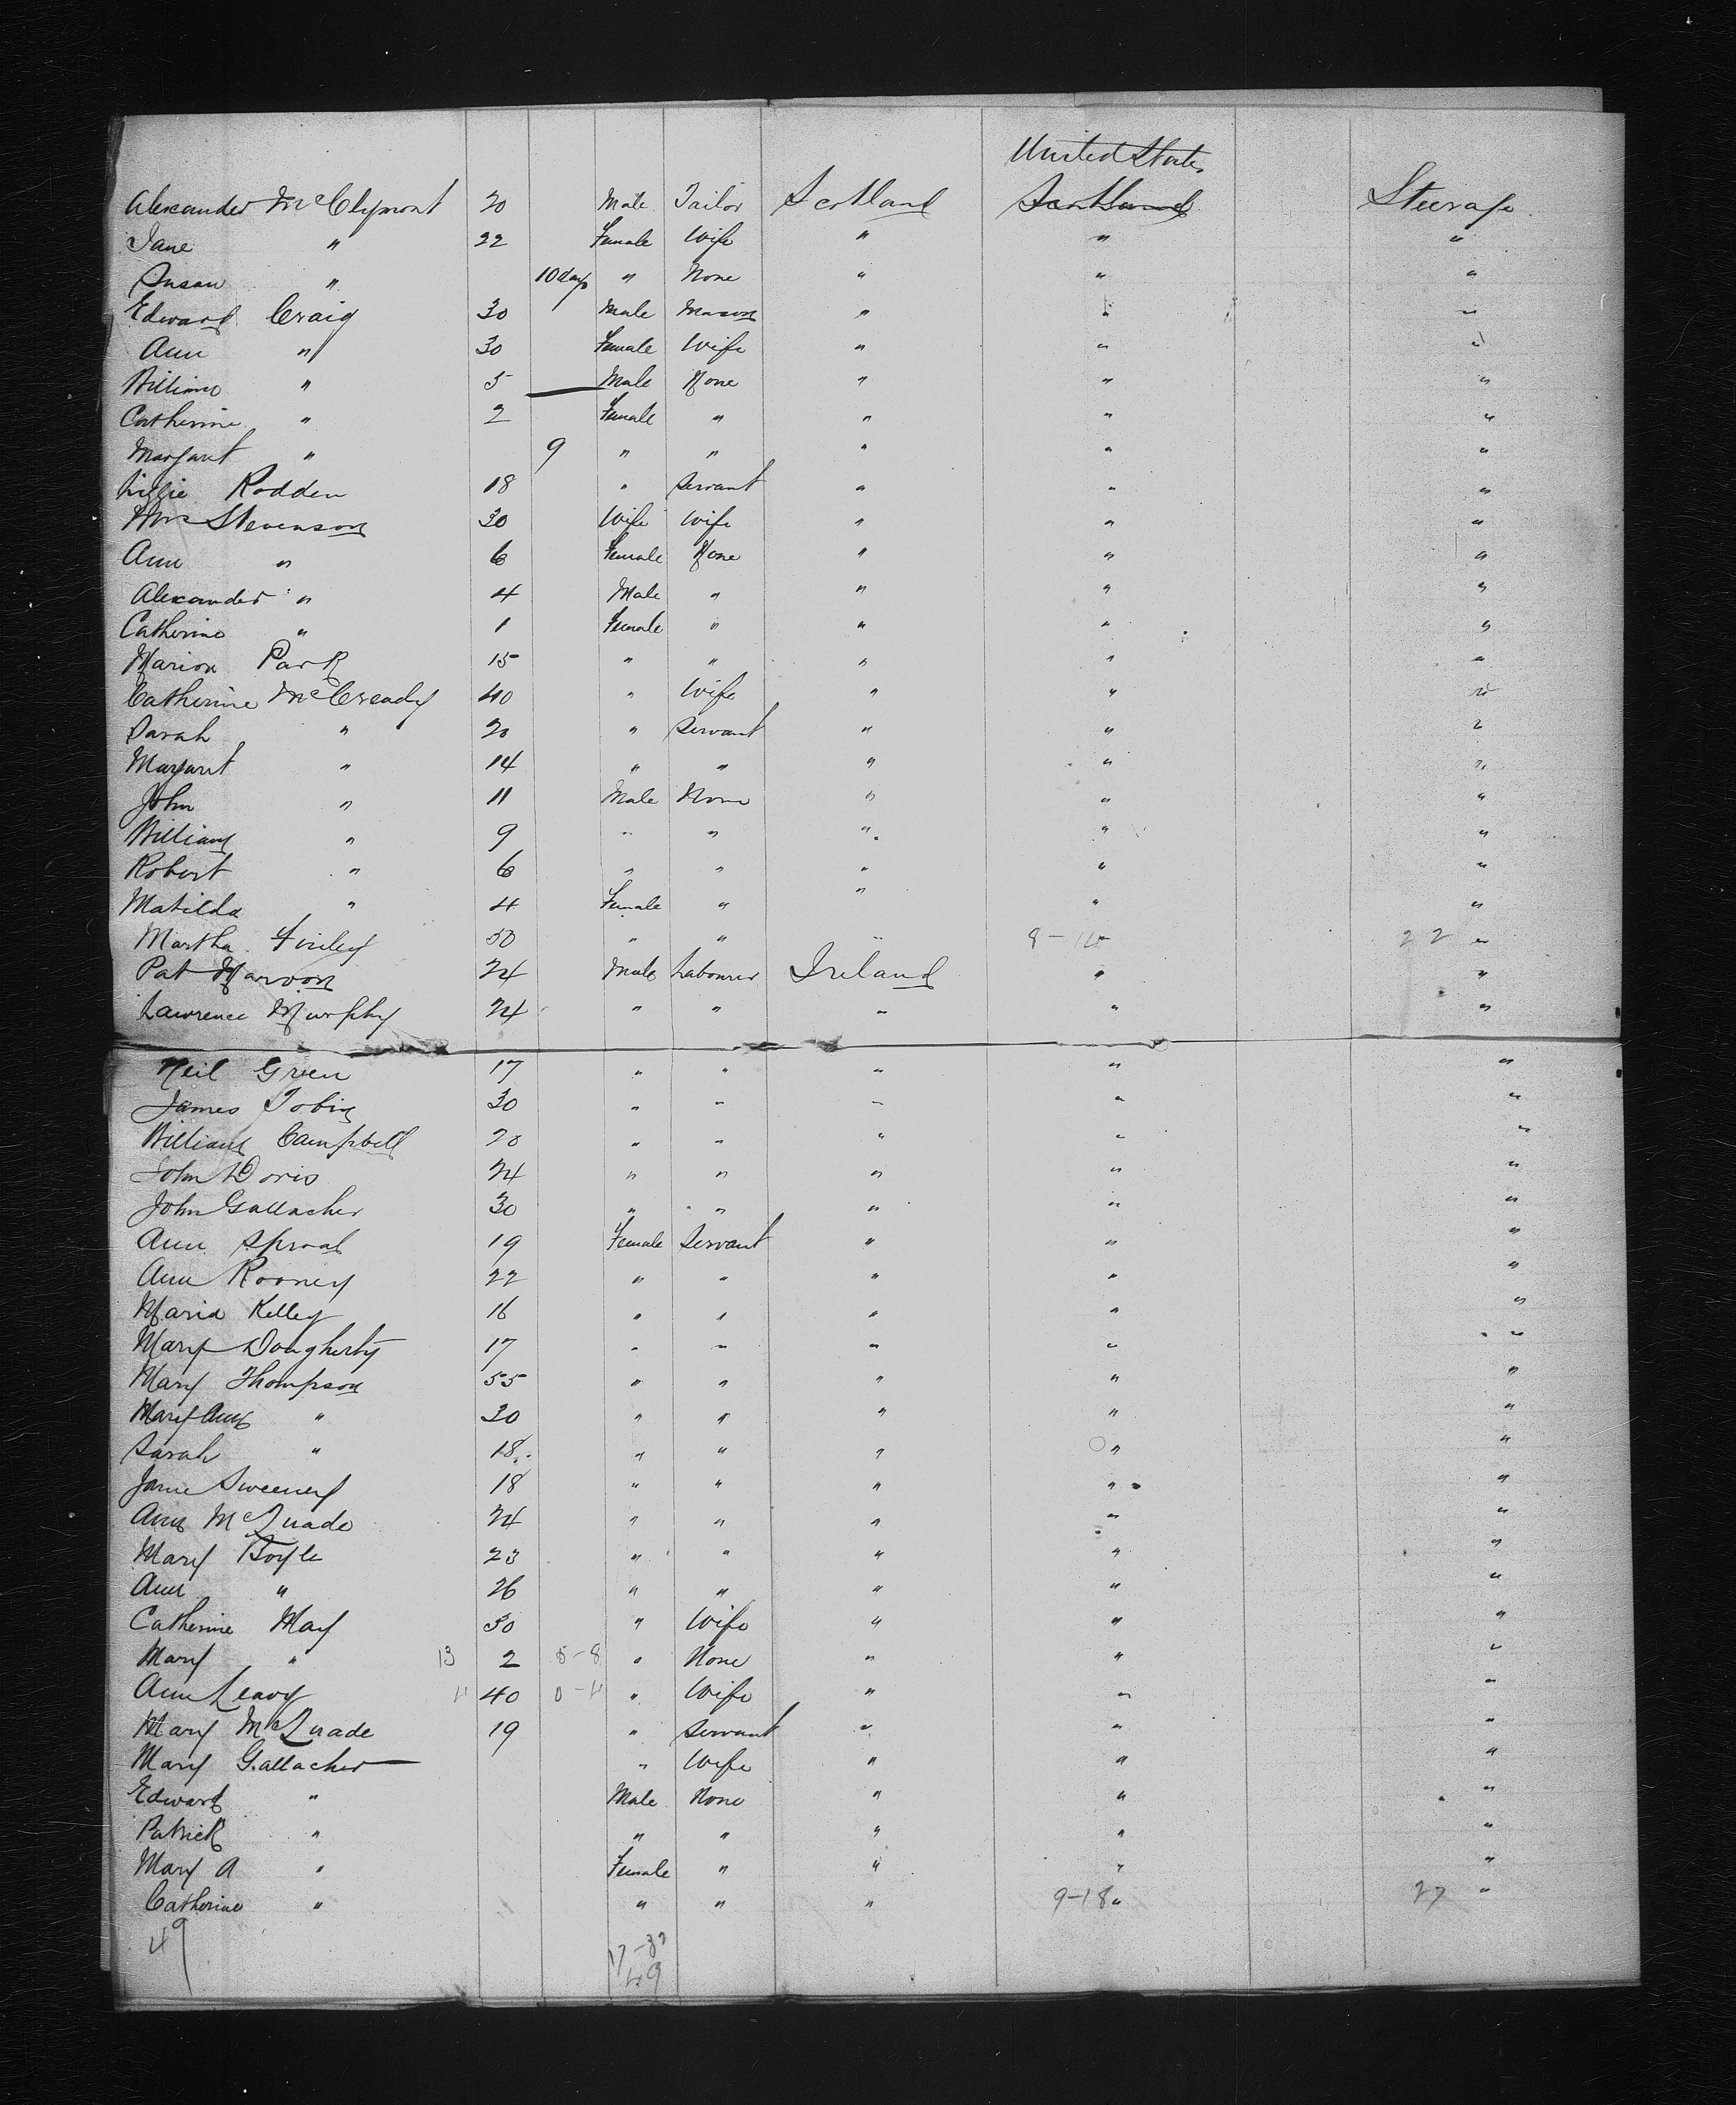 United States
Alexander McClymont 20 Male Tailor Scotland Scotland Steerage
Jane " 22 Female Wife " " "
Susan " 10 days " None " " "
Edward Craig 30 Male Mason " " "
Ann " 30 Female Wife " " "
William " 5 Male None " " "
Catherine " 2 Female " " " "
Margaret " 9 " " " " "
Lizzie Rodden 18 " Servant " " "
Mrs Stevenson 30 Wife Wife " " "
Ann " 6 Female None " " "
Alexander " 4 Male " " " "
Catherine " 1 Female " " " "
Marion Park 15 " " " " "
Catherine McCready 40 " Wife " " "
Sarah " 20 " Servant " " "
Margaret " 14 " " " " "
John " 11 Male None " " "
William " 9 " " " " "
Robert " 6 " " " " "
Matilda " 4 Female " " " "
Martha Finley 50 " " " 8-14 " 22 "
Pat 24 Male Labourer Ireland " "
Lawrence Murphy 24 " " " " "
Neil Green 17 " " " " "
James Tobin 30 " " " " "
William Campbell 20 " " " " "
John Doris 24 " " " " "
John Gallacher 30 " " " " "
Ann Sproat 19 Female Servant " " "
Ann Rooney 22 " " " " "
Maria Kelley 16 " " " " "
Mary Dougherty 17 " " " " "
Mary Thompson 55 " " " " "
Mary Ann " 30 " " " " "
Sarah " 18 " " " " "
Jane Sweeney 18 " " " " "
Ann McQuade 24 " " " " "
Mary Boyle 23 " " " " "
Ann " 26 " " " " "
Catherine May 30 " Wife " " "
Mary " 13 2 5-8 " None " " "
Ann Leavy 11 40 0-11 " Wife " " "
Mary McQuade 19 " Servant " " "
Mary Gallacher " Wife " " "
Edward " Male None " " "
Patrick " " " " " "
Mary A " Female " " " "
Catherine " " " " 9-18 " 27 "
49 17-32
49